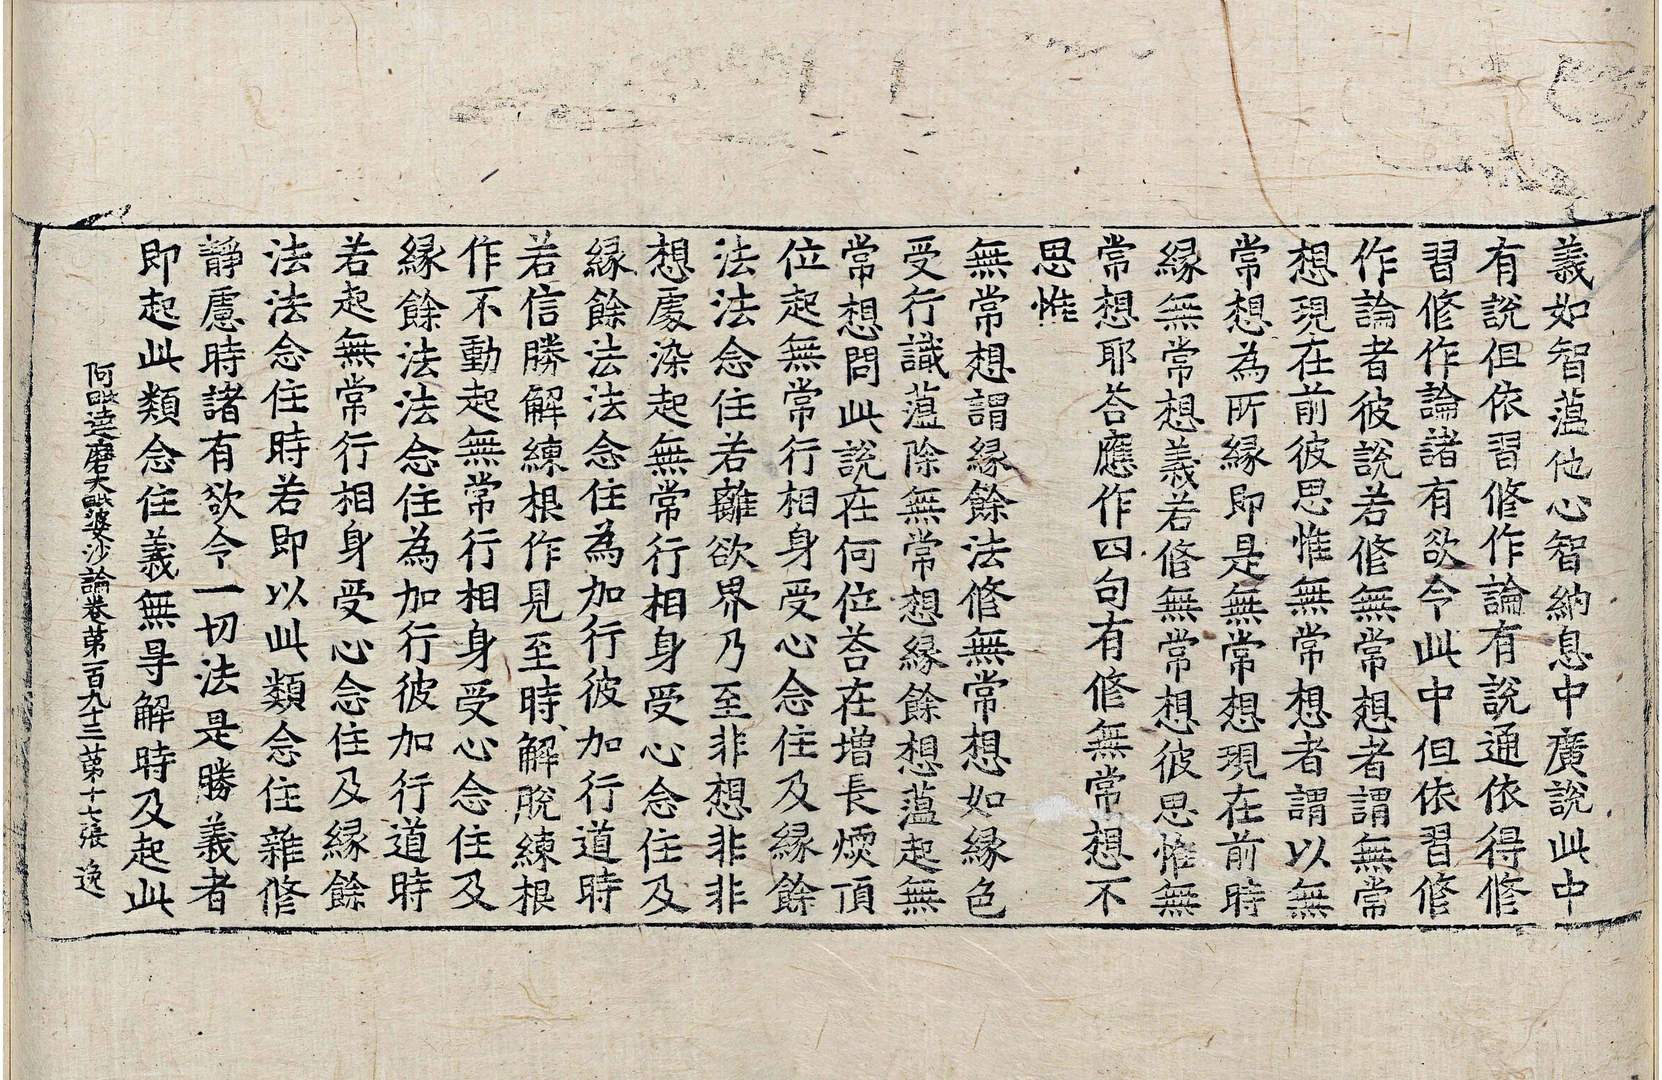 義如智蕰他心智納息中廣說此中
有說但依習修作論有說通依得修
習修作論諸有欲令此中但依習修
作論者彼說若修無常想者謂無常
想現在前彼思惟無常想者謂以無
常想為所緣即是無常想現在前時
緣無常想義若修無常想彼思惟無
常想耶荅應作四句有修無常想不
思惟
無常想謂緣餘法修無常想如緣色
受行識蕰除無常想緣餘想蕰起無
常想問此說在何位荅在增長煗頂
位起無常行相身受心念住及緣餘
法法念住若離欲界乃至非想非非
想處染起無常行相身受心念住及
緣餘法法念住為加行彼加行道時
若信勝解練根作見至時解脫練根
作不動起無常行相身受心念住及
緣餘法法念住為加行彼加行道時
若起無常行相身受心念住及緣餘
法法念住時若即以此類念住雜修
靜慮時諸有欲令一切法是勝義者
即起此類念住義無㝵解時及起此
阿毗達磨大毗婆沙論卷第百九十三 第十七張 逸